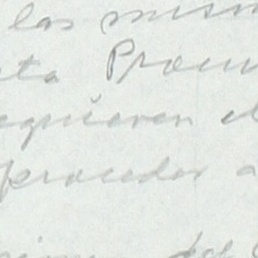 las mism
sta Provin
equieren el
proceder a
del